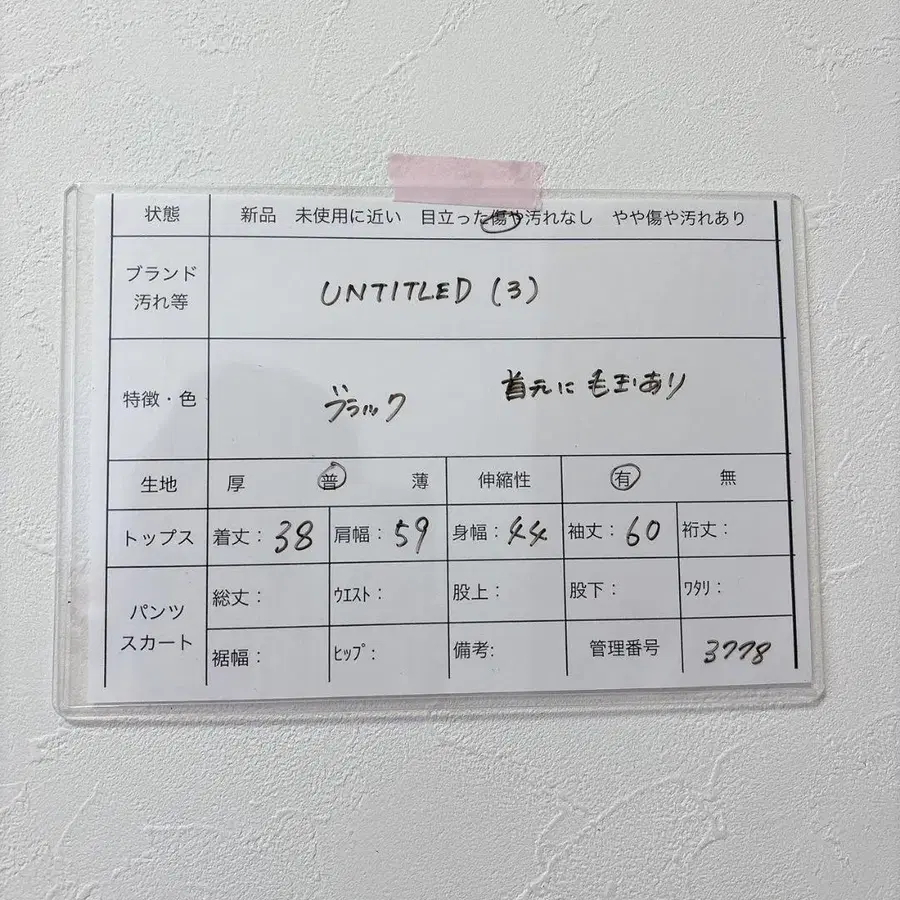 状態 新品 未使用に近い 目立った傷や汚れなし やや傷や汚れあり
ブランド
汚れ等
UNTITLED (3)
特徴・色 ブラック 首元に毛玉あり
生地 厚 普 薄 伸縮性 有 無
トップス 着丈：38 肩幅：59 身幅：44 袖丈：60 裄丈：
パンツ
スカート
総丈： ｳｴｽﾄ： 股上： 股下： ﾜﾀﾘ：
裾幅： ﾋｯﾌﾟ： 備考: 管理番号 3778